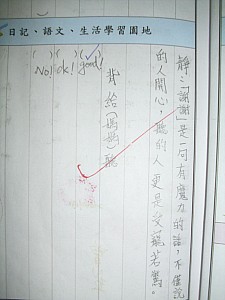 日記、語文、生活學習園地
靜:「謝謝」是一句有魔力的話，不僅說
的人開心，聽的人更是受寵若驚。
背給(媽媽)聽
( ) ( ) (✓)
No! ok! good!